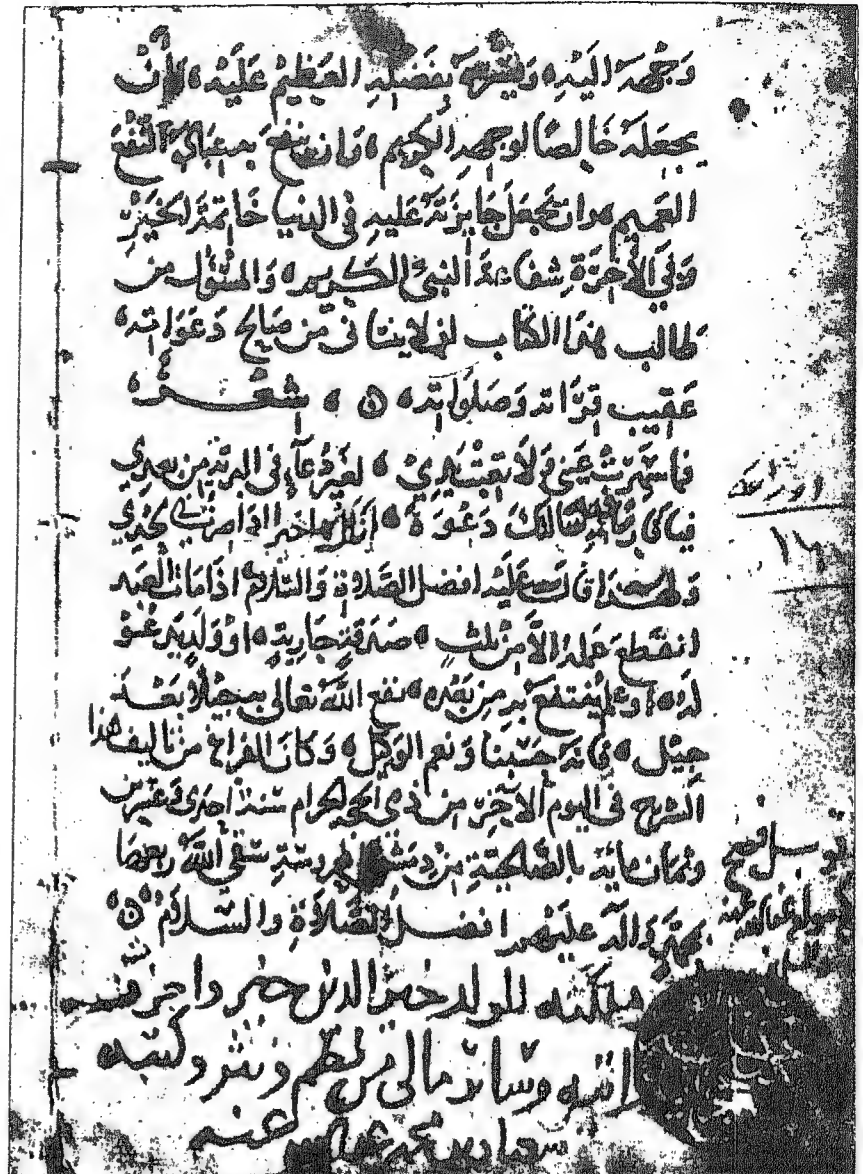 وجهه اليه ويشرفه بفضله العظيم عليه وان
يجعله خالصا لوجهه الكريم وان ينفع به عباده النفع
العميم وان يجعل جايزته عليه في الدنيا خاتمة الخير
وفي الآخرة شفاعة النبي الكريم والمسئول من
طالب هذا الكتاب ان لا ينسانى من صالح دعواته
عقيب قراته وصلواته ه شعر
فما سهرت عيني ولا تعبت يدي لغير دعاء في البرية من بعدي
دعوة
عليه افضل الصلاة والسلام اذا مات العبد
انقطع عمله الا من ثلث صدقة جارية او ولد يدعو
له او علم ينتفع به من بعده نفع الله تعالى به جيلا بعد
جيل فانه حسبنا ونعم الوكيل وكان الفراغ من تاليف هذا
الشرح في اليوم الاخر من ذي الحجة الحرام سنة احدى وعشرين
وثمان مايه بالصالحية من دمشق المحروسة سقى الله ربعها
بمحمد واله عليهم افضل الصلاة والسلام ه
للولد خير الدين خضر واجزته
وسائر مالي من نظم ونثر وكتبه
محمد
اوراق
١٦